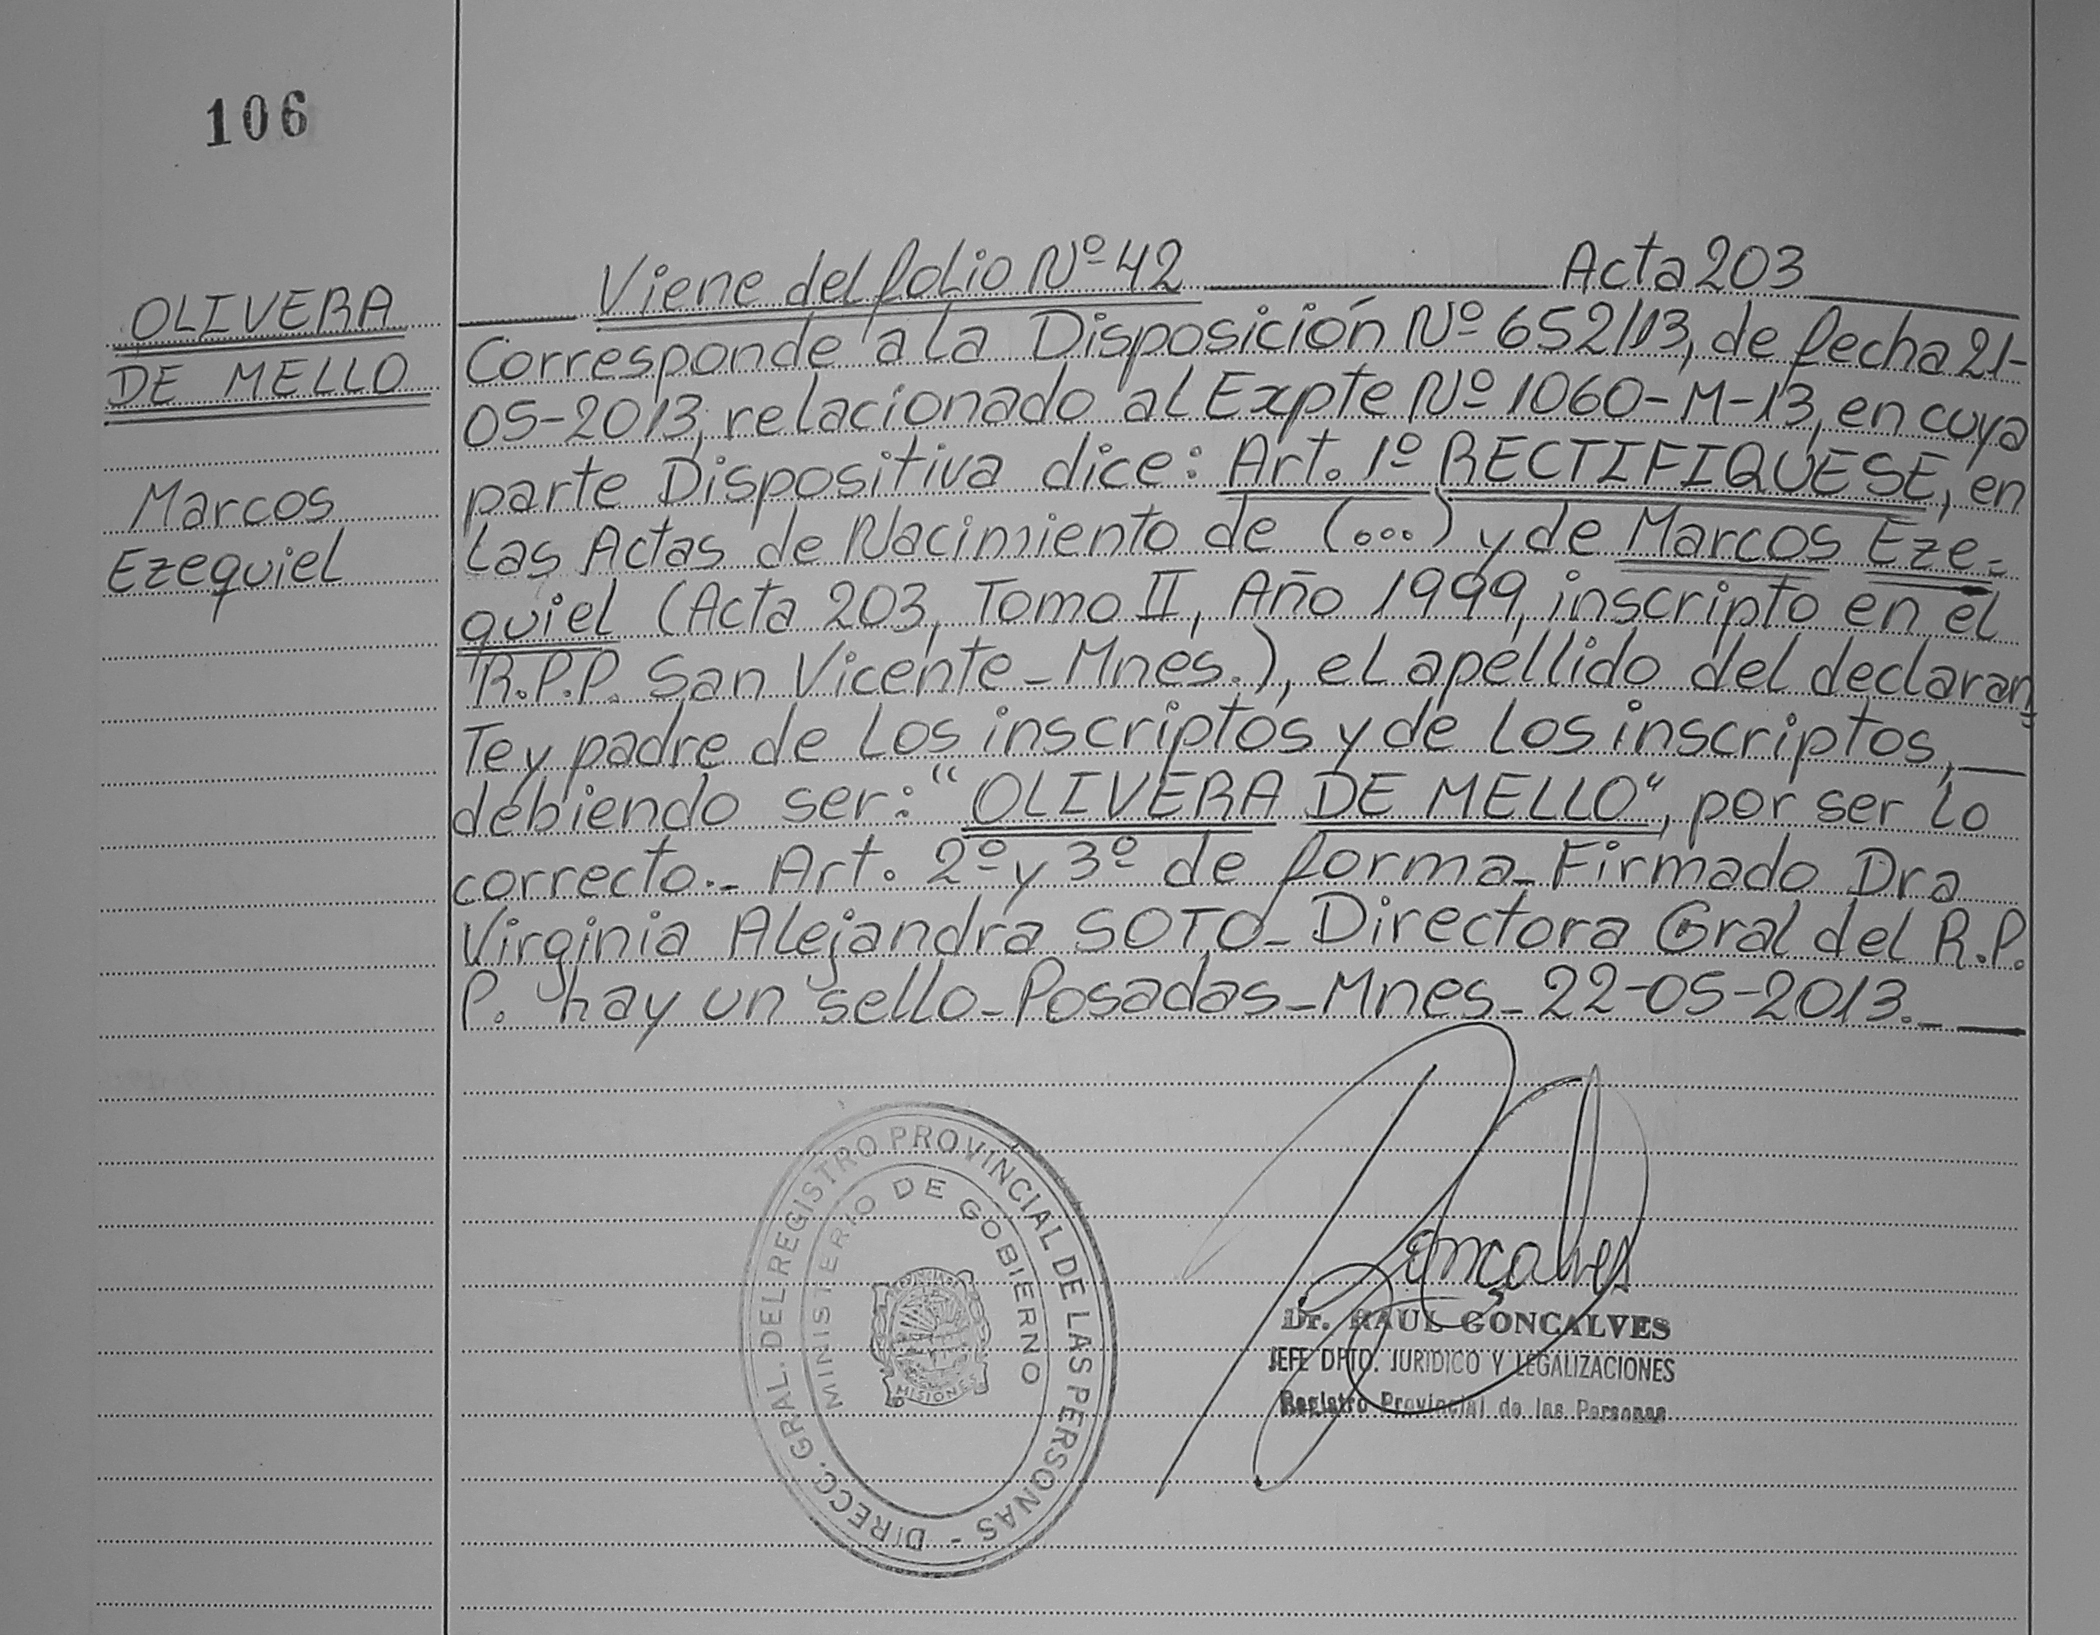 106
Viene del folio Nº 42 Acta 203
OLIVERA
DE MELLO
Marcos
Ezequiel
Corresponde a la Disposición Nº 652/13, de fecha 21-
05-2013, relacionado al Expte Nº 1060-M-13, en cuya
parte Dispositiva dice: Art. 1º RECTIFIQUESE, en
las Actas de Nacimiento de (...) y de Marcos Eze-
quiel (Acta 203, Tomo II, Año 1999, inscripto en el
R.P.P. San Vicente - Mnes.), el apellido del declaran-
te y padre de los inscriptos y de los inscriptos,
debiendo ser: "OLIVERA DE MELLO", por ser lo
correcto.- Art. 2º y 3º de forma - Firmado Dra
Virginia Alejandra SOTO - Directora Gral del R.P.
P. hay un sello - Posadas - Mnes - 22-05-2013.-
DIRECC. GRAL. DEL REGISTRO PROVINCIAL DE LAS PERSONAS -
MINISTERIO DE GOBIERNO
MISIONES
Gonçalves
Dr. RAUL GONÇALVES
JEFE DPTO. JURIDICO Y LEGALIZACIONES
Registro Provincial de las Personas